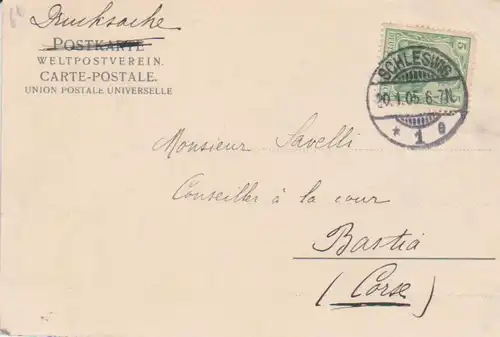 Drucksache
POSTKARTE
WELTPOSTVEREIN.
CARTE-POSTALE.
UNION POSTALE UNIVERSELLE
5
SCHLESWIG
20.1.05.6-7N.
* 1 e
Monsieur Savelli
Conseiller à la cour
Bastia
(Corse)